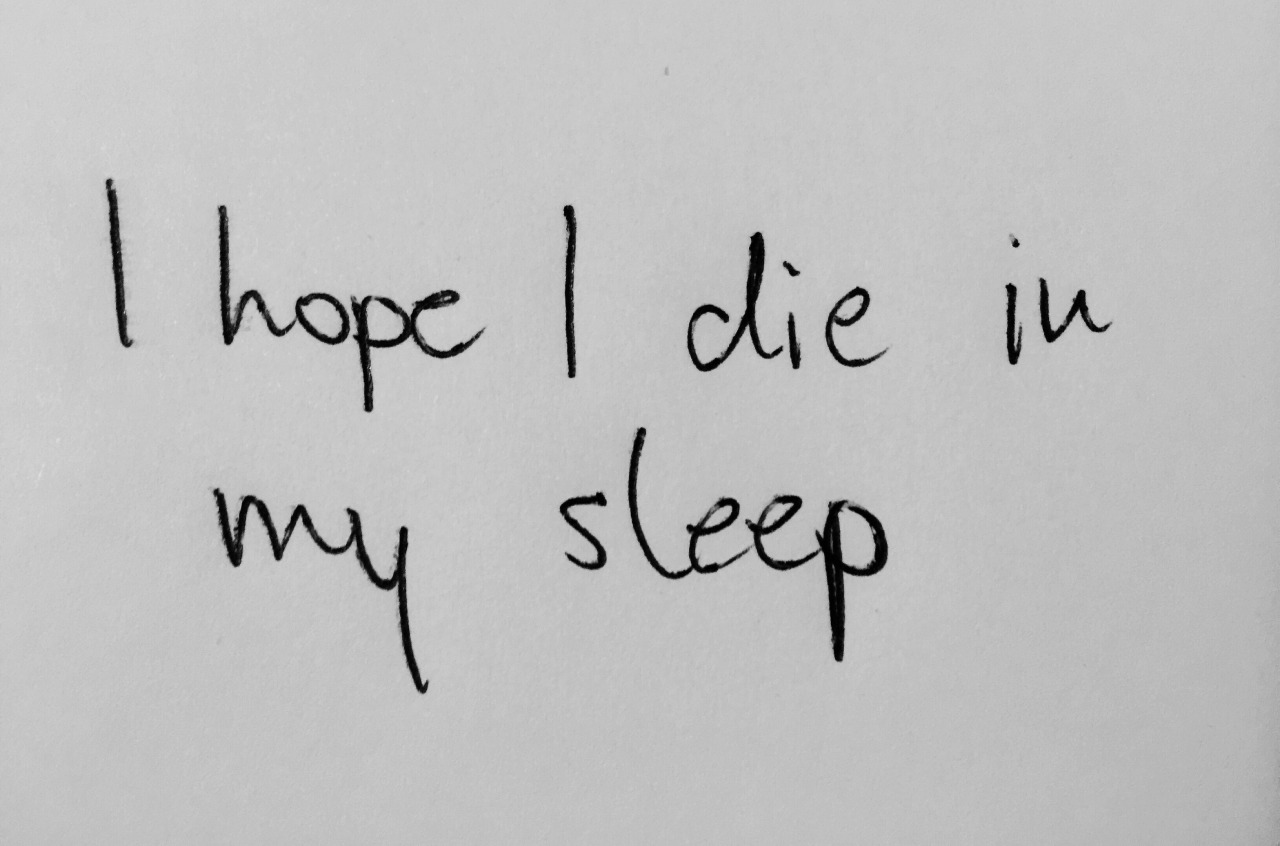 I hope I die in
my sleep